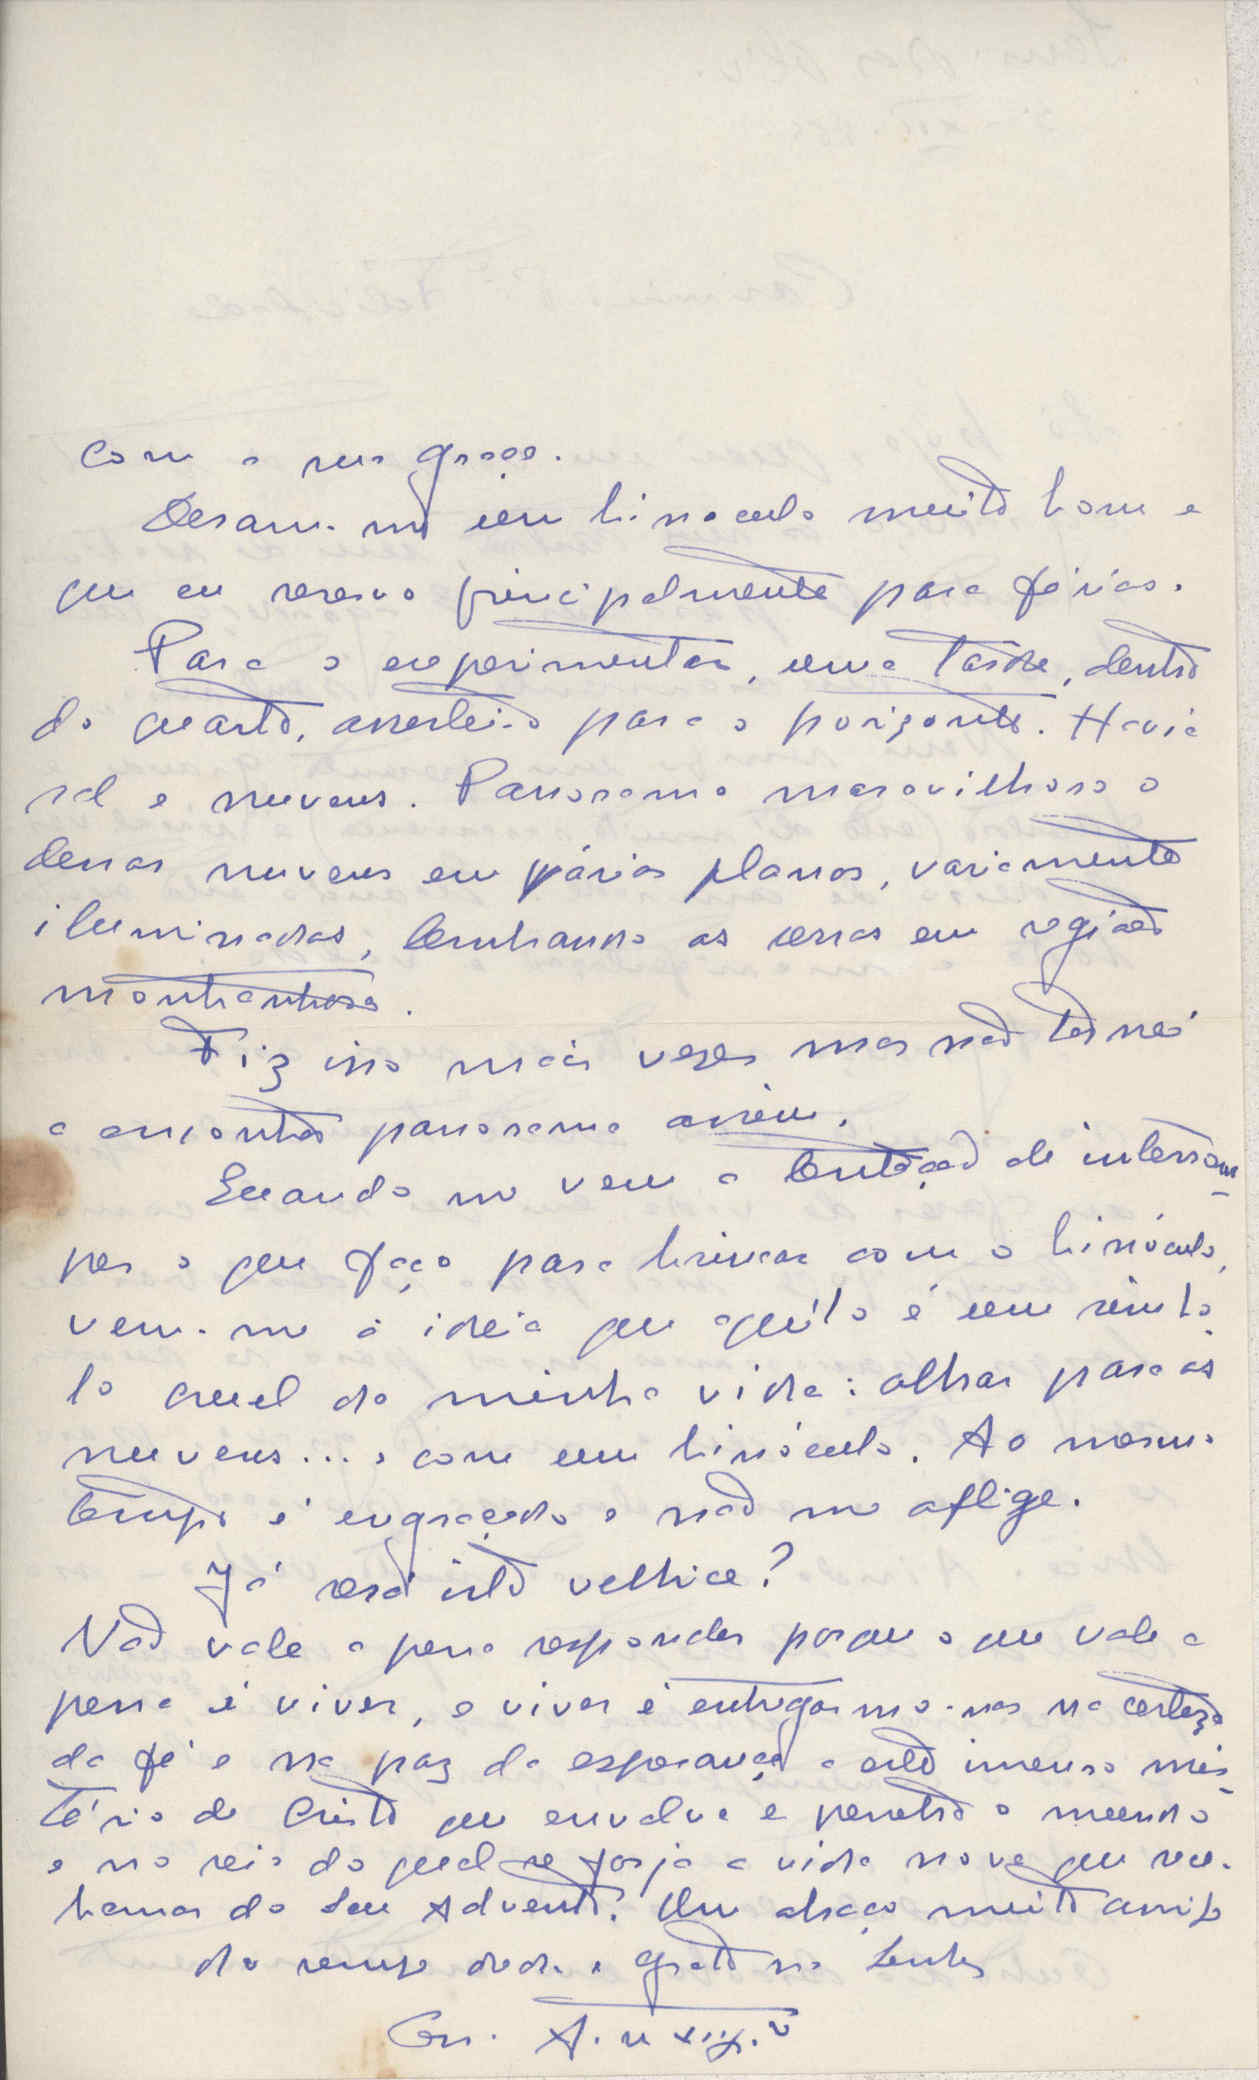 com a sua graça.
Deram-me um binoculo muito bom e
que eu reservo principalmente para férias.
Para o experimentar, uma tarde, dentro
do quarto, assestei-o para o horizonte. Havia
sol e nuvens. Panorama maravilhoso o
dessas nuvens em vários planos, variamente
iluminadas, lembrando as serras em região
montanhosa.
Fiz isso mais vezes mas não tornei
a encontrar panorama assim.
Quando me vem a tentação de interrom-
per o que faço para brincar com o binóculo,
vem-me à ideia que aquilo é um símbo
lo cruel da minha vida: olhar para as
nuvens... e com um binóculo. Ao mesmo
tempo é engraçado e não me aflige.
Já será isto velhice?
Não vale a pena responder porque o que vale a
pena é viver, e viver é entregarmo-nos na certeza
da fé e na paz da esperança a este imenso mis-
tério de Cristo que envolve e penetra o mundo
e no seio do qual se forja a vida nova que rece-
bemos do Seu Advento. Um abraço muito amigo
do sempre dedo. e grato no Senhor
Con. A.